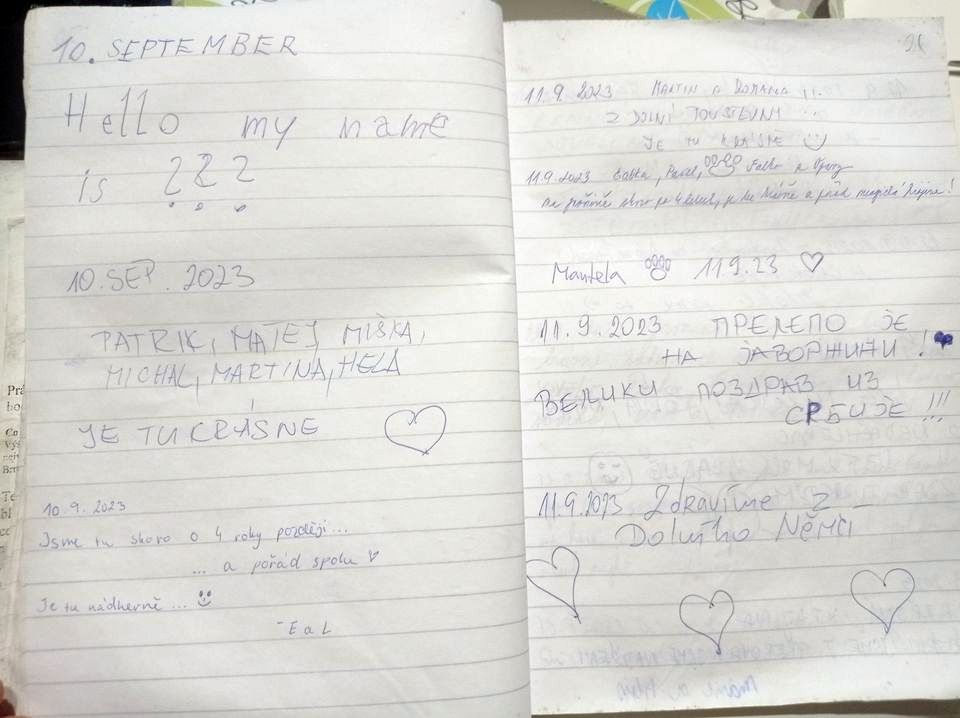 10. SEPTEMBER
Hello my name
is ???
10. SEP. 2023
PATRIK, MATEJ, MIŠKA,
MICHAL, MARTINA, HELA
JE TU KRÁSNE
10. 9. 2023
Jsme tu skoro o 4 roky později...
... a pořád spolu
Je tu nádherně ...
E a L
11.9.2023 MARTIN a ROMANA
Z DOLNÍ
JE TU KRÁSNĚ
11.9.2023 Pavel, a
je tu krásně a
Manžela 11.9.23
11.9.2023 ПРЕЛЕПО ЈЕ
НА ЈАВОРЖИНИ!
ВЕЛИКИ ПОЗДРАВ ИЗ
СРБИЈЕ!!!
11.9.2023 Zdravíme z
Dolního Němčí